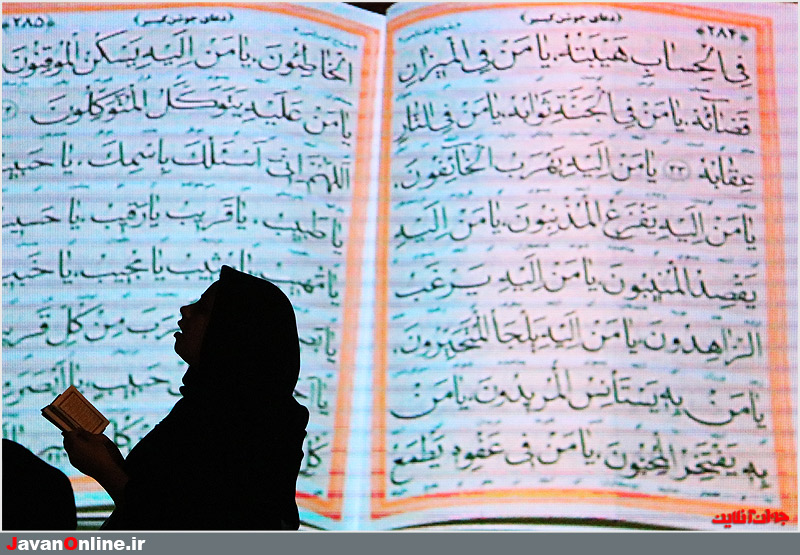 ﴿۲۸۴﴾
(دعای جوشن کبیر)
فِی الْحِسابِ هَیْبَتُهُ، یا مَنْ فِی الْمیزانِ
قَضآئُهُ، یا مَنْ فِی الْجَنَّةِ ثَوابُهُ، یا مَنْ فِی النّارِ
عِقابُهُ ﴿۳۳﴾ یا مَنْ اِلَیْهِ یَهْرَبُ الْخآئِفُونَ،
یا مَنْ اِلَیْهِ یَفْزَعُ الْمُذْنِبُونَ، یا مَنْ اِلَیْهِ
یَقْصِدُ الْمُنیبُونَ، یا مَنْ اِلَیْهِ یَرْغَبُ
الزّاهِدُونَ، یا مَنْ اِلَیْهِ یَلْجَأُ الْمُتَحَیِّرُونَ،
یا مَنْ بِهِ یَسْتَأْنِسُ الْمُریدُونَ، یا مَنْ
بِهِ یَفْتَخِرُ الْمُحِبُّونَ، یا مَنْ فی عَفْوِهِ یَطْمَعُ
(دعای جوشن کبیر)
﴿۲۸۵﴾
الْخاطِئُونَ، یا مَنْ اِلَیْهِ یَسْکُنُ الْمُوقِنُونَ
یا مَنْ عَلَیْهِ یَتَوَکَّلُ الْمُتَوَکِّلُونَ
اَللّهُمَّ اِنّی اَسْئَلُکَ بِاسْمِکَ، یا حَبیبُ
یا طَبیبُ، یا قَریبُ یا رَقیبُ، یا حَسیبُ
یا مُهیبُ، یا مُثیبُ یا مُجیبُ، یا خَبیرُ
مِنْ کُلِّ
حَبیبٍ، یا
کُلِّ
جوان آنلاین
JavanOnline.ir